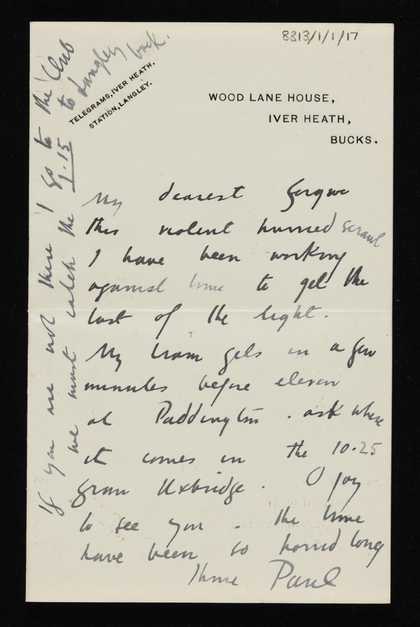 8313/1/1/17
TELEGRAMS, IVER HEATH.
STATION, LANGLEY.
WOOD LANE HOUSE,
IVER HEATH,
BUCKS.
My dearest
this violent hurried scrawl
I have been working
against time to get the
last of the light.
My train gets in a few
minutes before eleven
at Paddington. ask where
it comes in the 10.25
from Uxbridge. O joy
to see you. The time
have been so horrid long
Thine Paul
If you are not there I go to the Club
we must catch the 1.15 to Langley back.